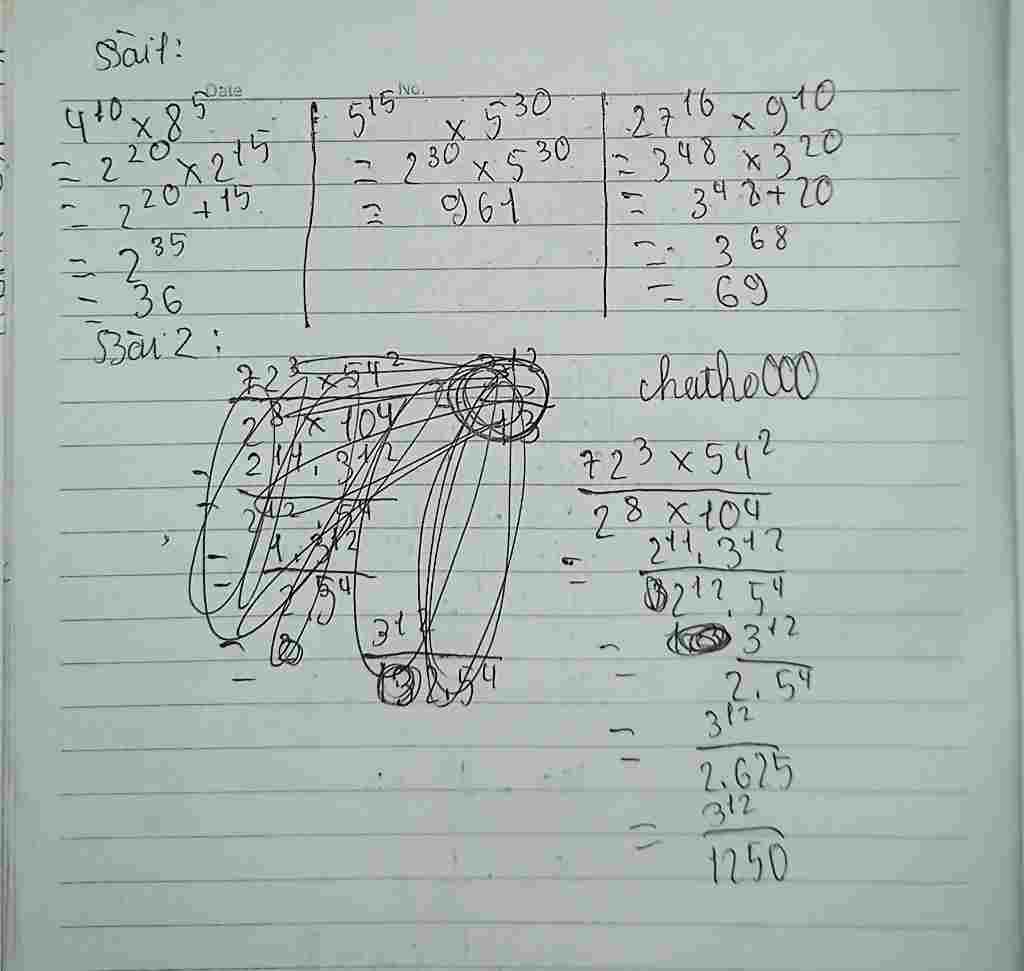 Bài 1:
Date No.
4¹⁰ x 8⁵
= 2²⁰ x 2¹⁵
= 2²⁰ + ¹⁵
= 2³⁵
= 36
5¹⁵ x 5³⁰
= 2³⁰ x 5³⁰
= 961
27¹⁶ x 9¹⁰
= 3⁴⁸ x 3²⁰
= 3⁴⁸⁺²⁰
= 3⁶⁸
= 69
Bài 2:
72³ x 54²
2⁸ x 10⁴
= 2¹⁴ . 3¹²
2¹² . 5⁴
= 1 . 3¹²
2 . 5⁴
=
= 3¹²
2 . 5⁴
72³ x 54²
2⁸ x 10⁴
= 2¹¹ . 3¹²
2¹² . 5⁴
= 3¹²
2 . 5⁴
= 3¹²
2 . 625
= 3¹²
1250